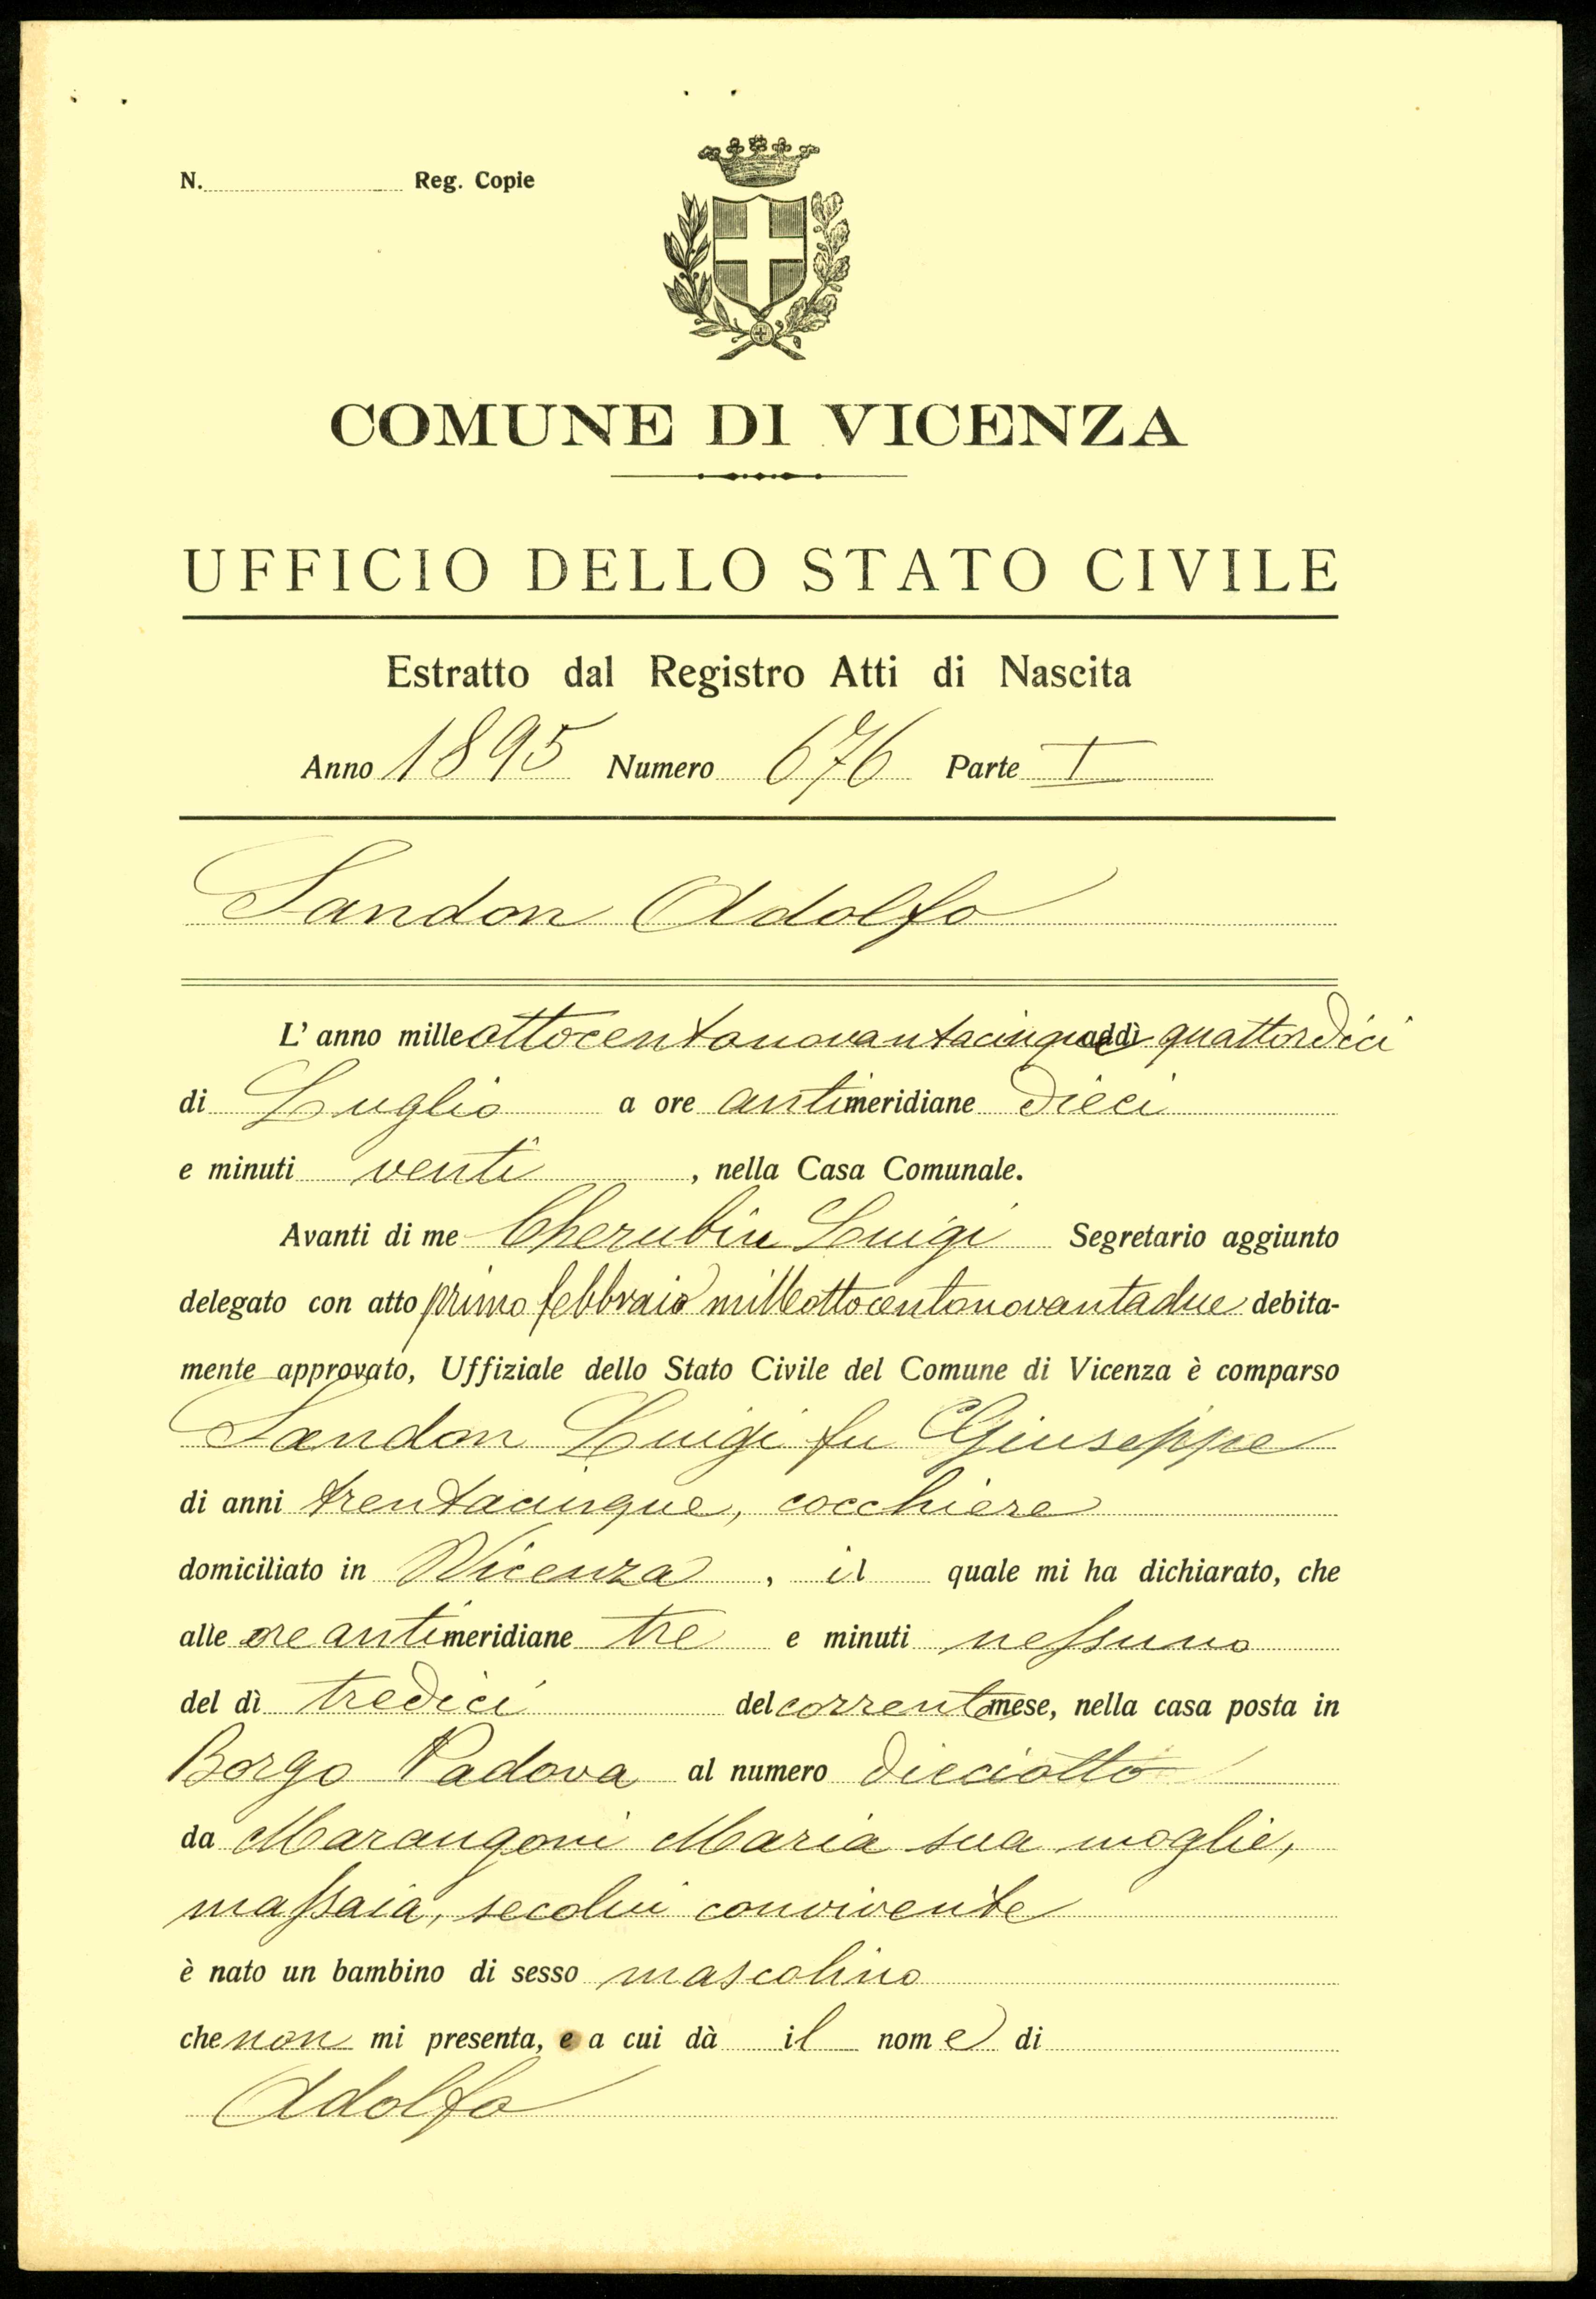 N. Reg. Copie
COMUNE DI VICENZA
UFFICIO DELLO STATO CIVILE
Estratto dal Registro Atti di Nascita
Anno 1895 Numero 676 Parte I
Sandon Adolfo
L' anno mille ottocentonovantacinque addì quattordici
di Luglio a ore antimeridiane dieci
e minuti venti , nella Casa Comunale.
Avanti di me Cherubin Luigi Segretario aggiunto
delegato con atto primo febbraio milleottocentonovantadue debita-
mente approvato, Uffiziale dello Stato Civile del Comune di Vicenza è comparso
Sandon Luigi fu Giuseppe
di anni trentacinque, cocchiere
domiciliato in Vicenza , il quale mi ha dichiarato, che
alle ore antimeridiane tre e minuti nessuno
del dì tredici del corrente mese, nella casa posta in
Borgo Padova al numero dieciotto
da Marangoni Maria sua moglie,
massaia, secolui convivente
è nato un bambino di sesso mascolino
che non mi presenta, e a cui dà il nome di
Adolfo